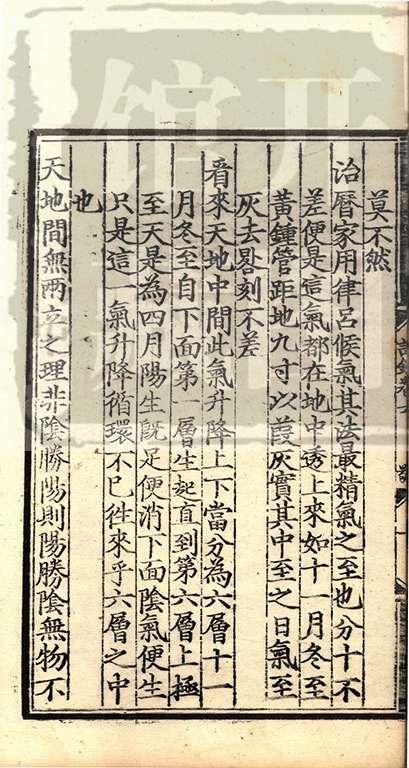 莫不然
治曆家用律呂候氣其法最精氣之至也分寸不
差便是這氣都在地中透上來如十一月冬至
黃鍾管距地九寸以葭灰實其中至之日氣至
灰去晷刻不差
看來天地中間此氣升降上下當分為六層十一
月冬至自下面第一層生起直到第六層上極
至天是為四月陽生旣足便消下面陰氣便生
只是這一氣升降循環不已徃來乎六層之中
也
天地間無兩立之理非陰勝陽則陽勝陰無物不